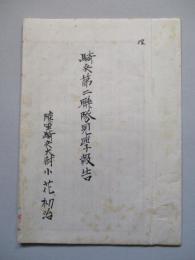 騎兵第二聯隊見学報告
陸軍騎兵大尉小花初治